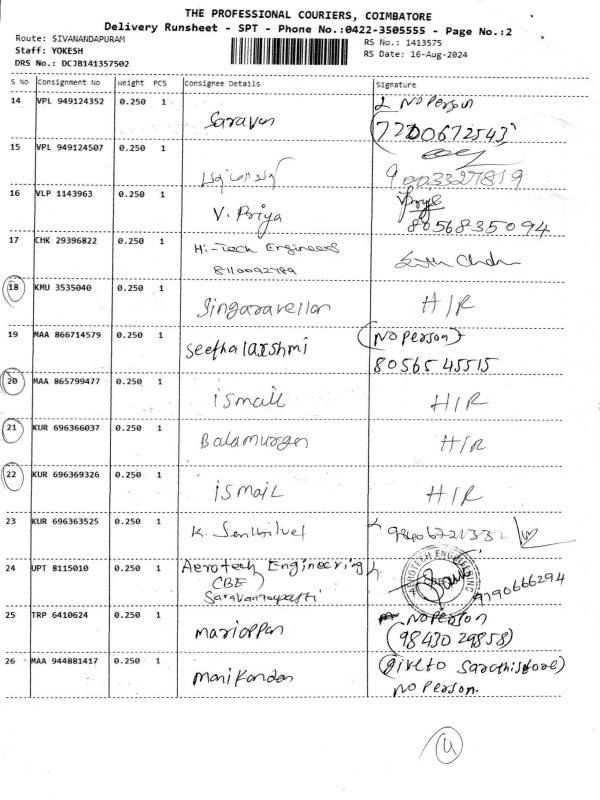 THE PROFESSIONAL COURIERS, COIMBATORE
Delivery Runsheet - SPT - Phone No.:0422-3505555 - Page No.:2
Route: SIVANANDAPURAM
RS No.: 1413575
Staff: YOKESH
RS Date: 16-Aug-2024
DRS No.: DCJB141357502
S No Consignment No Weight PCS Consignee Details Signature
14 VPL 949124352 0.250 1 Saravan No Person
7200672543
15 VPL 949124507 0.250 1
9003327819
16 VLP 1143963 0.250 1 V. Priya Priya
8056835094
17 CHK 29396822 0.250 1 Hi-Tech Engineers
8110092789
18 KMU 3535040 0.250 1 Singaravellan H/R
19 MAA 866714579 0.250 1 Seethalakshmi (No Person)
8056545515
20 MAA 865799477 0.250 1 ismail H/R
21 KUR 696366037 0.250 1 Balamurgan H/R
22 KUR 696369326 0.250 1 ismail H/R
23 KUR 696363525 0.250 1 K. Senthilvel
24 UPT 8115010 0.250 1 Aerotech Engineering
(CBE)
AEROTECH ENGINEERING
9790666294
25 TRP 6410624 0.250 1 Mariappan No Person
(9843029858)
26 MAA 944881417 0.250 1 Manikandan (give to Sarathi store)
No Person.